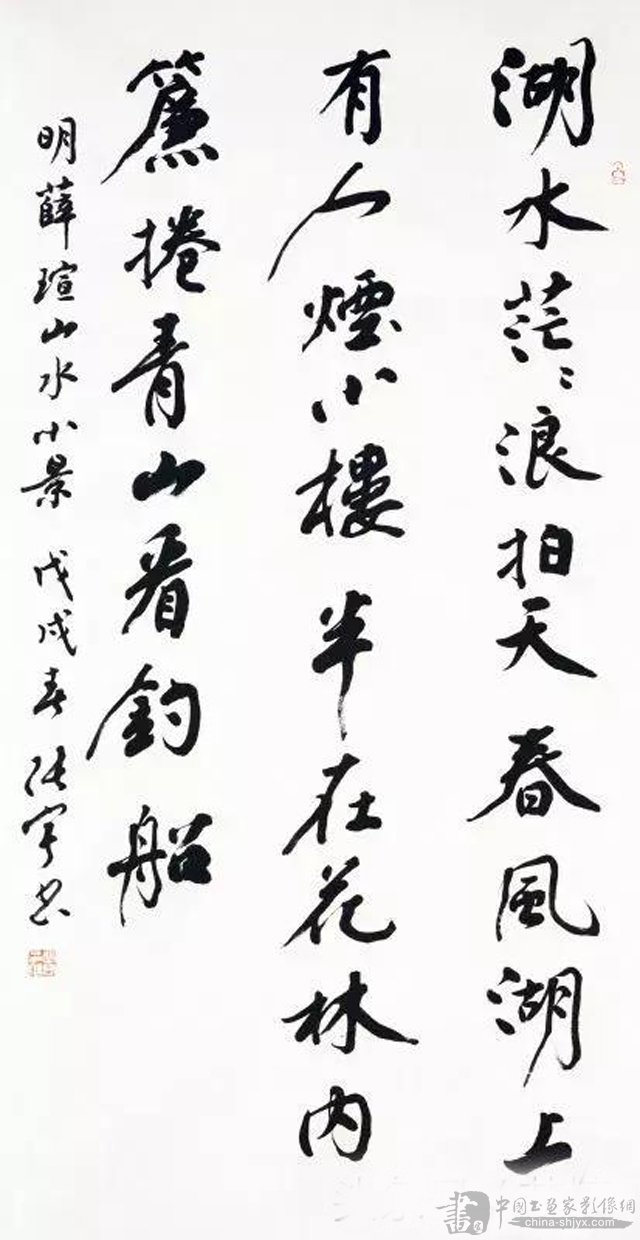 湖水茫〻浪拍天春風湖上
有人煙小樓半在花林内
簾捲青山看釣船
明薛瑄山水小景 戊戌春 張宇书
書 中国书画家影像網
china-shjyx.com